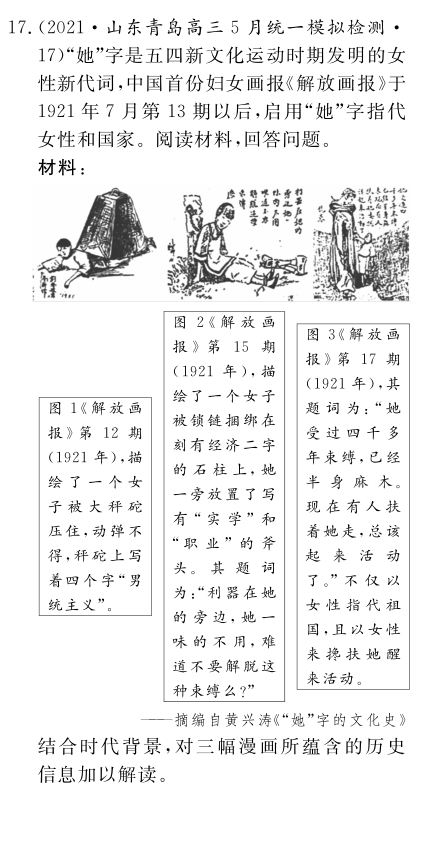 17.(2021·山东青岛高三5月统一模拟检测·
17)“她”字是五四新文化运动时期发明的女
性新代词,中国首份妇女画报《解放画报》于
1921年7月第13期以后,启用“她”字指代
女性和国家。阅读材料,回答问题。
材料:
图1《解放画
报》第12期
(1921年),描
绘了一个女
子被大秤砣
压住,动弹不
得,秤砣上写
着四个字“男
统主义”。
图2《解放画
报》第15期
(1921年),描
绘了一个女子
被锁链捆绑在
刻有经济二字
的石柱上,她
一旁放置了写
有“实学”和
“职业”的斧
头。其题词
为:“利器在她
的旁边,她一
味的不用,难
道不要解脱这
种束缚么?”
图3《解放画
报》第17期
(1921年),其
题词为:“她
受过四千多
年束缚,已经
半身麻木。
现在有人扶
着她走,总该
起来活动
了。”不仅以
女性指代祖
国,且以女性
来搀扶她醒
来活动。
——摘编自黄兴涛《“她”字的文化史》
结合时代背景,对三幅漫画所蕴含的历史
信息加以解读。